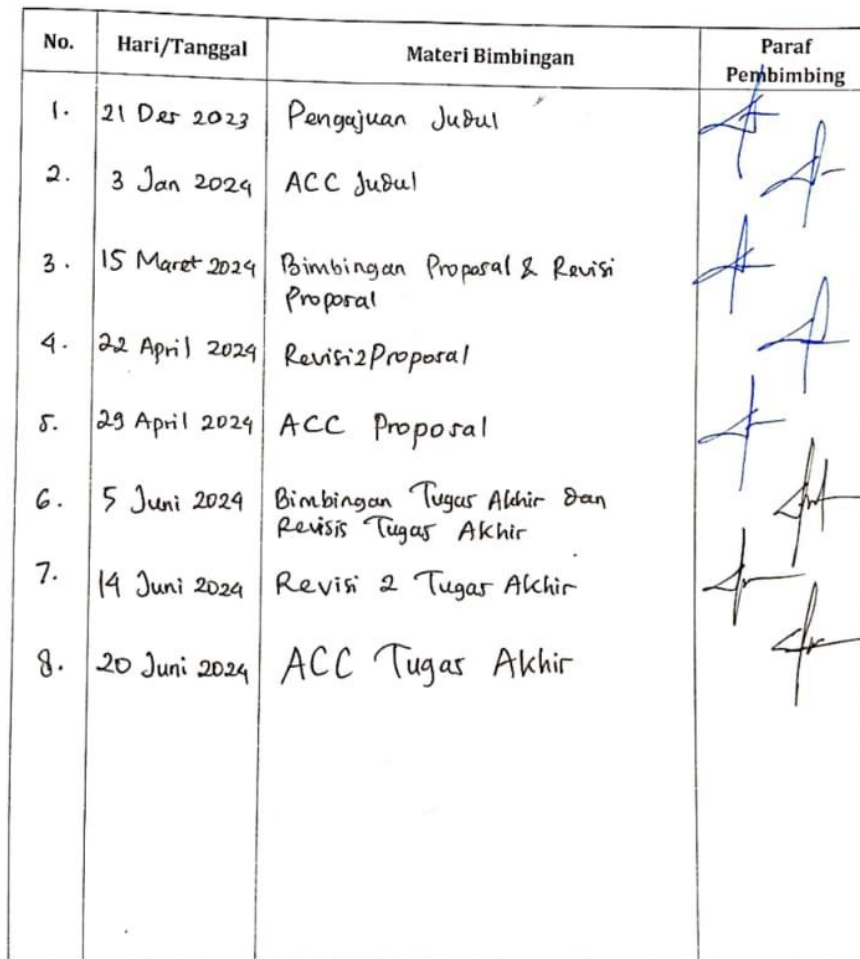 No. Hari/Tanggal Materi Bimbingan Paraf
Pembimbing
1. 21 Des 2023 Pengajuan Judul
2. 3 Jan 2024 ACC Judul
3. 15 Maret 2024 Bimbingan Proposal & Revisi
Proposal
4. 22 April 2024 Revisi2Proposal
5. 29 April 2024 ACC Proposal
6. 5 Juni 2024 Bimbingan Tugas Akhir dan
Revisis Tugas Akhir
7. 14 Juni 2024 Revisi 2 Tugas Akhir
8. 20 Juni 2024 ACC Tugas Akhir